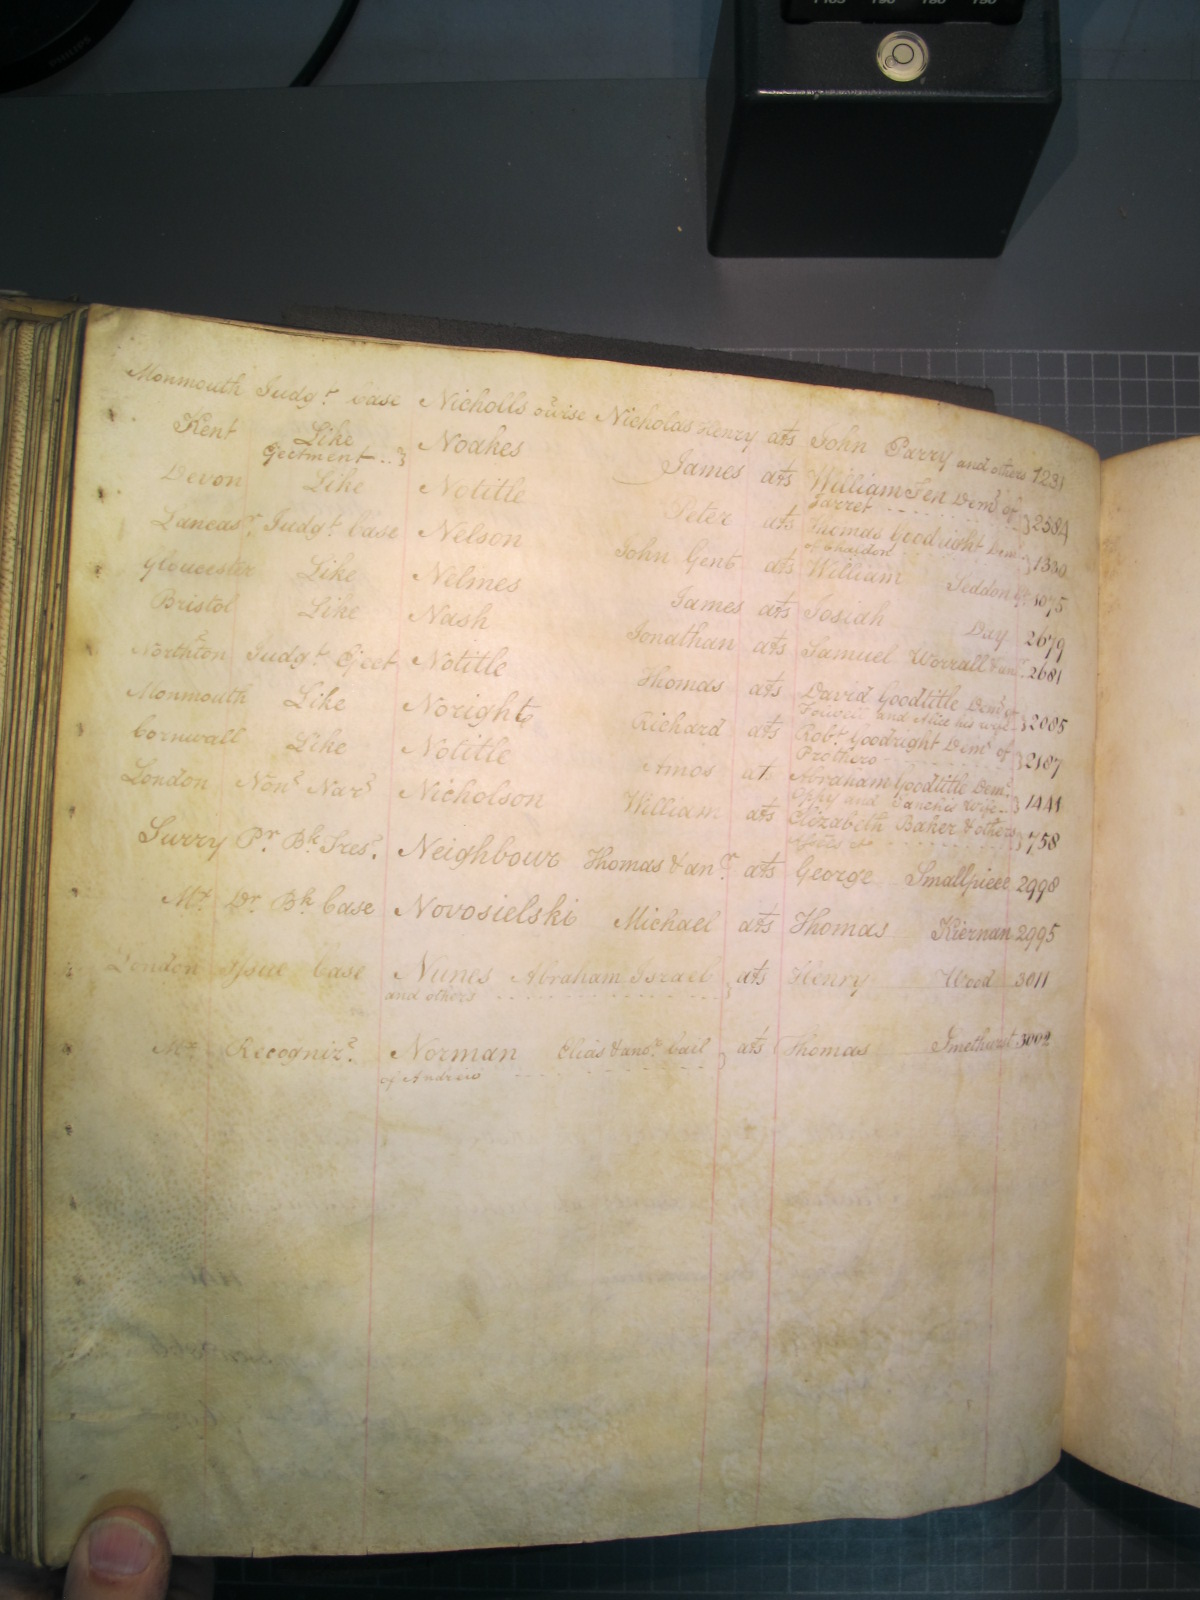 Monmouth Judgt. Case Nicholls otwise Nicholas Henry ats John Parry and others 1231
Kent Like Noakes James ats William Fen Demd. of 2584
Ejectment Jarret
Devon Like Notitle Peter ats Thomas Goodright Dem. 1330
of Chasdon
Lancasr. Judgt. Case Nelson John Gent ats William Seddon Gt. 1075
Gloucester Like Nelmes James ats Josiah Day 2679
Bristol Like Nash Jonathan ats Samuel Worrall & anr. 2681
Northton Judgt. Eject Notitle Thomas ats David Goodtitle Demd. of 2085
and Alice his wife
Monmouth Like Noright Richard ats Robt. Goodright Demd. of 2187
Prothero
Cornwall Like Notitle Amos at Abraham Goodtitle Demd. 1441
Oppy and his Wife
London Nons. Nars. Nicholson William ats Elizabeth Baker & others 758
Surry Pr. Bk. Tres. Neighbour Thomas & anr. ats George Smallpiece 2998
Mx. Dr. Bk. Case Novosielski Michael ats Thomas Kiernan 2995
London Issue Case Nunes Abraham Israel ats Henry Wood 3011
and others
Mx. Recognizs. Norman Elias & anor. bail ats Thomas Smethurst 3002
of Andrew